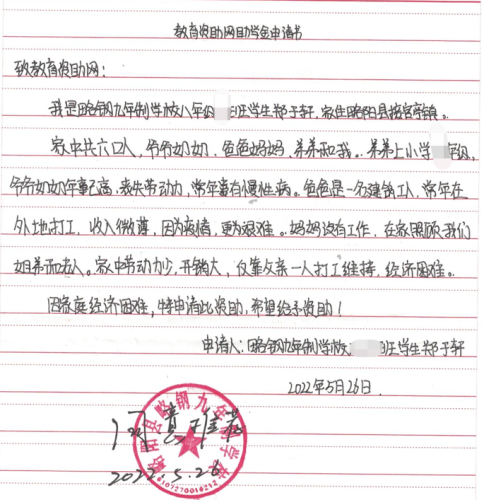 教育资助网助学金申请书
致教育资助网：
我是略钢九年制学校八年级班学生郑于轩，家住略阳县接官亭镇。
家中共六口人，爷爷奶奶、爸爸妈妈、弟弟和我。弟弟上小学年级，
爷爷奶奶年事已高，丧失劳动力，常年患有慢性病。爸爸是一名建筑工人，常年在
外地打工，收入微薄，因为疫情，更为艰难。妈妈没有工作，在家照顾我们
姐弟和老人。家中劳动力少，开销大，仅靠父亲一人打工维持，经济困难。
因家庭经济困难，特申请此资助，希望给予资助！
申请人：略钢九年制学校班学生郑于轩
2022年5月26日.
略阳县略钢九年制学校
2022.5.26
6107270010212